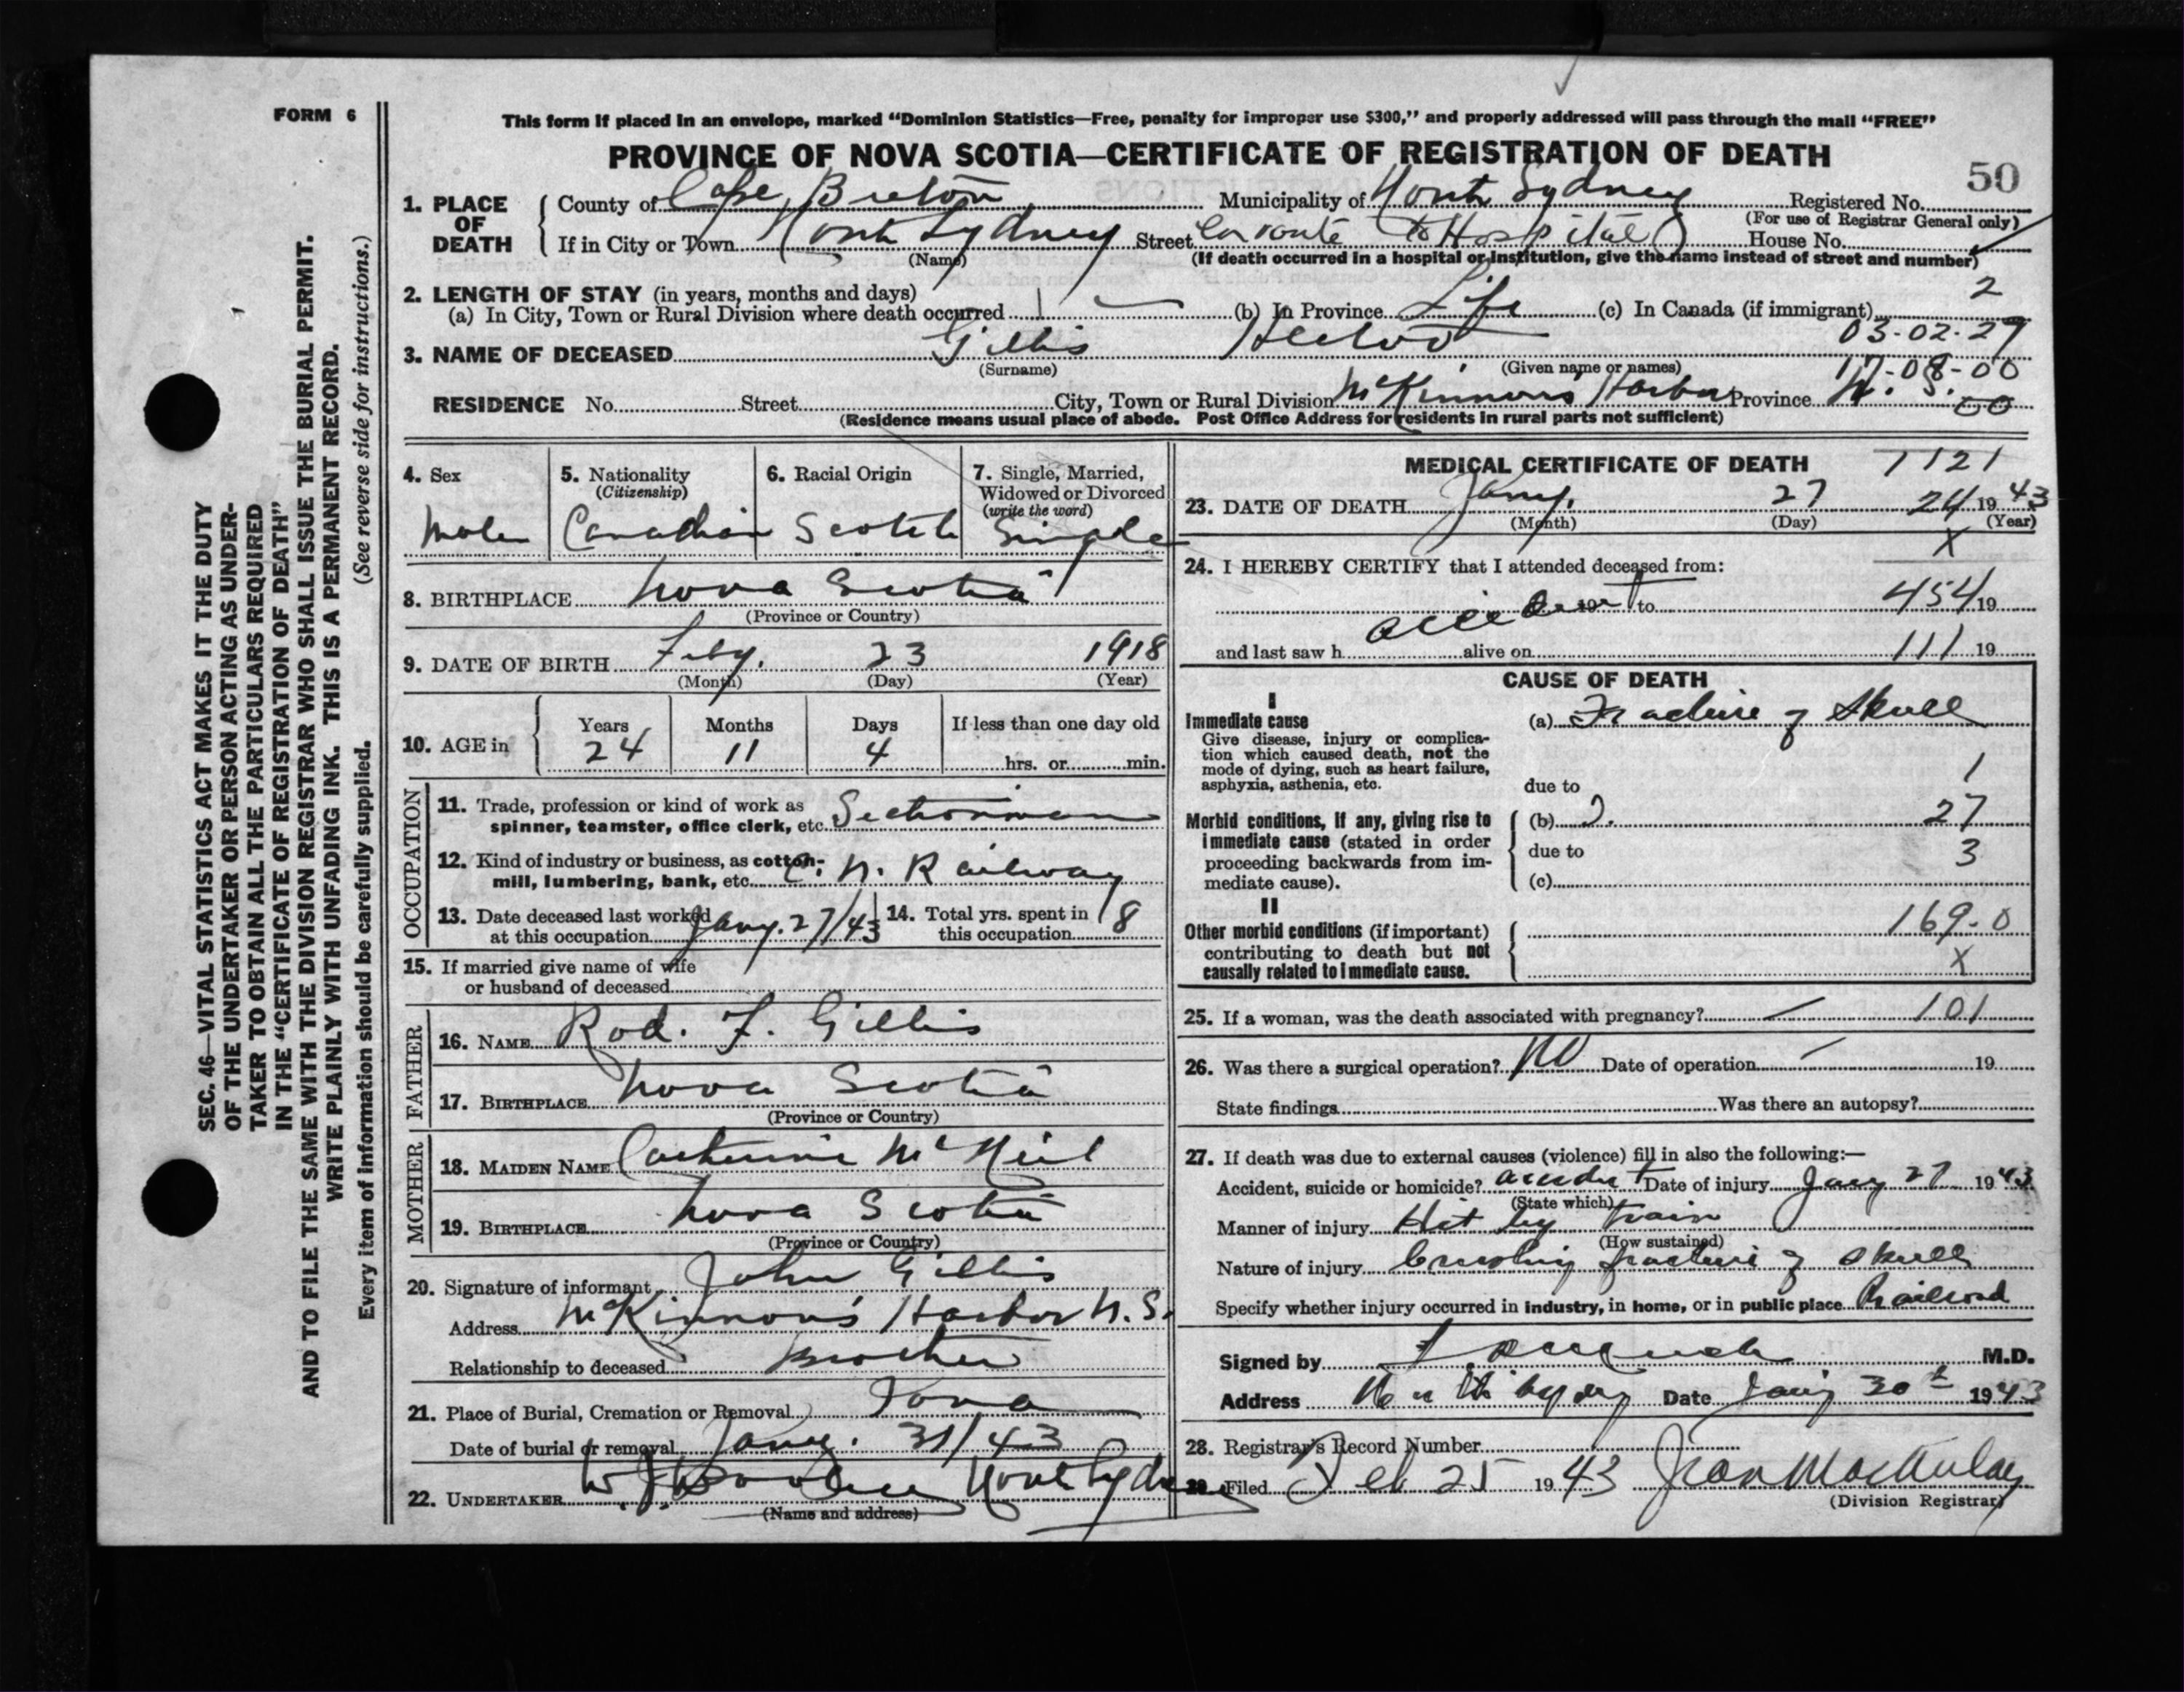 FORM 6
This form if placed in an envelope, marked “Dominion Statistics—Free, penalty for improper use $300,” and properly addressed will pass through the mail “FREE”
PROVINCE OF NOVA SCOTIA—CERTIFICATE OF REGISTRATION OF DEATH
50
1. PLACE OF DEATH
County of Cape Breton Municipality of North Sydney Registered No.
(For use of Registrar General only)
If in City or Town North Sydney Street En route to Hospital House No.
(Name) (If death occurred in a hospital or institution, give the name instead of street and number)
2. LENGTH OF STAY (in years, months and days) 2
(a) In City, Town or Rural Division where death occurred (b) In Province Life (c) In Canada (if immigrant)
03-02-29
3. NAME OF DECEASED Gillis Hector
(Surname) (Given name or names) 17-08-00
RESIDENCE No. Street City, Town or Rural Division McKinnon's Harbor Province N. S. 00
(Residence means usual place of abode. Post Office Address for residents in rural parts not sufficient)
4. Sex
Male
5. Nationality
(Citizenship)
Canadian
6. Racial Origin
Scotch
7. Single, Married,
Widowed or Divorced
(write the word)
Single
8. BIRTHPLACE Nova Scotia
(Province or Country)
9. DATE OF BIRTH Feby. 23 1918
(Month) (Day) (Year)
10. AGE in
Years Months Days If less than one day old
24 11 4
hrs. or min.
OCCUPATION
11. Trade, profession or kind of work as
spinner, teamster, office clerk, etc. Sectionman
12. Kind of industry or business, as cotton-
mill, lumbering, bank, etc. C. N. Railway
13. Date deceased last worked
at this occupation Jany. 27/43
14. Total yrs. spent in
this occupation 8
15. If married give name of wife
or husband of deceased
FATHER
16. NAME Rod. F. Gillis
17. BIRTHPLACE Nova Scotia
(Province or Country)
MOTHER
18. MAIDEN NAME Catherine McNeil
19. BIRTHPLACE Nova Scotia
(Province or Country)
20. Signature of informant John Gillis
Address McKinnon's Harbor N. S.
Relationship to deceased Brother
21. Place of Burial, Cremation or Removal Iona
Date of burial or removal Jany. 31/43
22. UNDERTAKER W. J. North Sydney
(Name and address)
MEDICAL CERTIFICATE OF DEATH 7121
23. DATE OF DEATH Jany. 27 24 1943
(Month) (Day) (Year)
X
24. I HEREBY CERTIFY that I attended deceased from:
accident 19 to 454 19
and last saw h alive on 111 19
CAUSE OF DEATH
I
Immediate cause (a) Fracture of Skull
Give disease, injury or complica-
tion which caused death, not the
mode of dying, such as heart failure, 1
asphyxia, asthenia, etc. due to
Morbid conditions, if any, giving rise to (b) 27
immediate cause (stated in order
proceeding backwards from im- due to 3
mediate cause). (c)
II
Other morbid conditions (if important) 169-0
contributing to death but not
causally related to immediate cause. X
25. If a woman, was the death associated with pregnancy? — 101
26. Was there a surgical operation? No Date of operation — 19
State findings Was there an autopsy?
27. If death was due to external causes (violence) fill in also the following:—
Accident, suicide or homicide? accident Date of injury Jany 27 1943
(State which)
Manner of injury Hit by train
(How sustained)
Nature of injury Crushing fracture of skull
Specify whether injury occurred in industry, in home, or in public place Railroad
Signed by M.D.
Address North Sydney Date Jany 30th 1943
28. Registrar's Record Number
29. Filed Feb 25 1943 Jean MacAulay
(Division Registrar)
SEC. 46—VITAL STATISTICS ACT MAKES IT THE DUTY
OF THE UNDERTAKER OR PERSON ACTING AS UNDER-
TAKER TO OBTAIN ALL THE PARTICULARS REQUIRED
IN THE “CERTIFICATE OF REGISTRATION OF DEATH”
AND TO FILE THE SAME WITH THE DIVISION REGISTRAR WHO SHALL ISSUE THE BURIAL PERMIT.
WRITE PLAINLY WITH UNFADING INK. THIS IS A PERMANENT RECORD.
Every item of information should be carefully supplied. (See reverse side for instructions.)